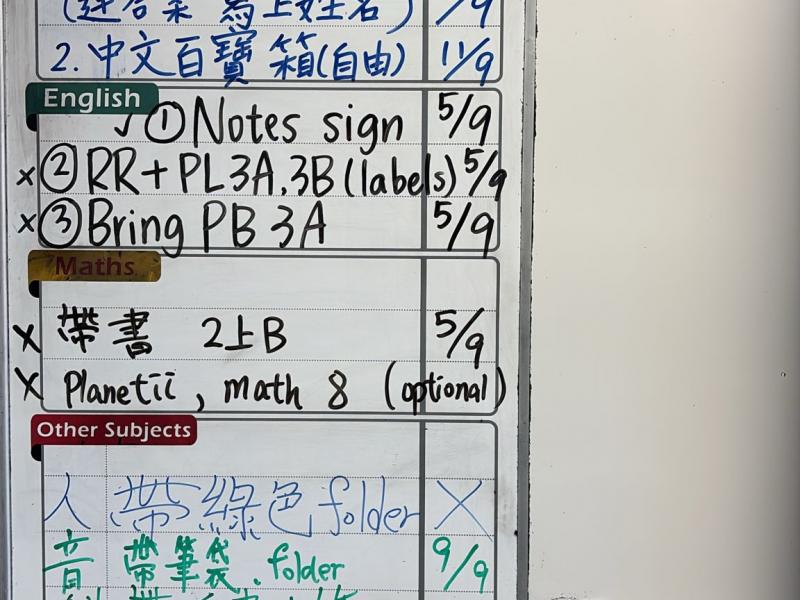 寫上姓名) /9
2. 中文百寶箱(自由) 11/9
English
✓ ① Notes sign 5/9
× ② RR+PL3A.3B(labels) 5/9
× ③ Bring PB 3A 5/9
Maths
× 帶書 2上B 5/9
× Planetii, math 8 (optional)
Other Subjects
人 帶綠色folder ×
音 帶筆袋.folder 9/9